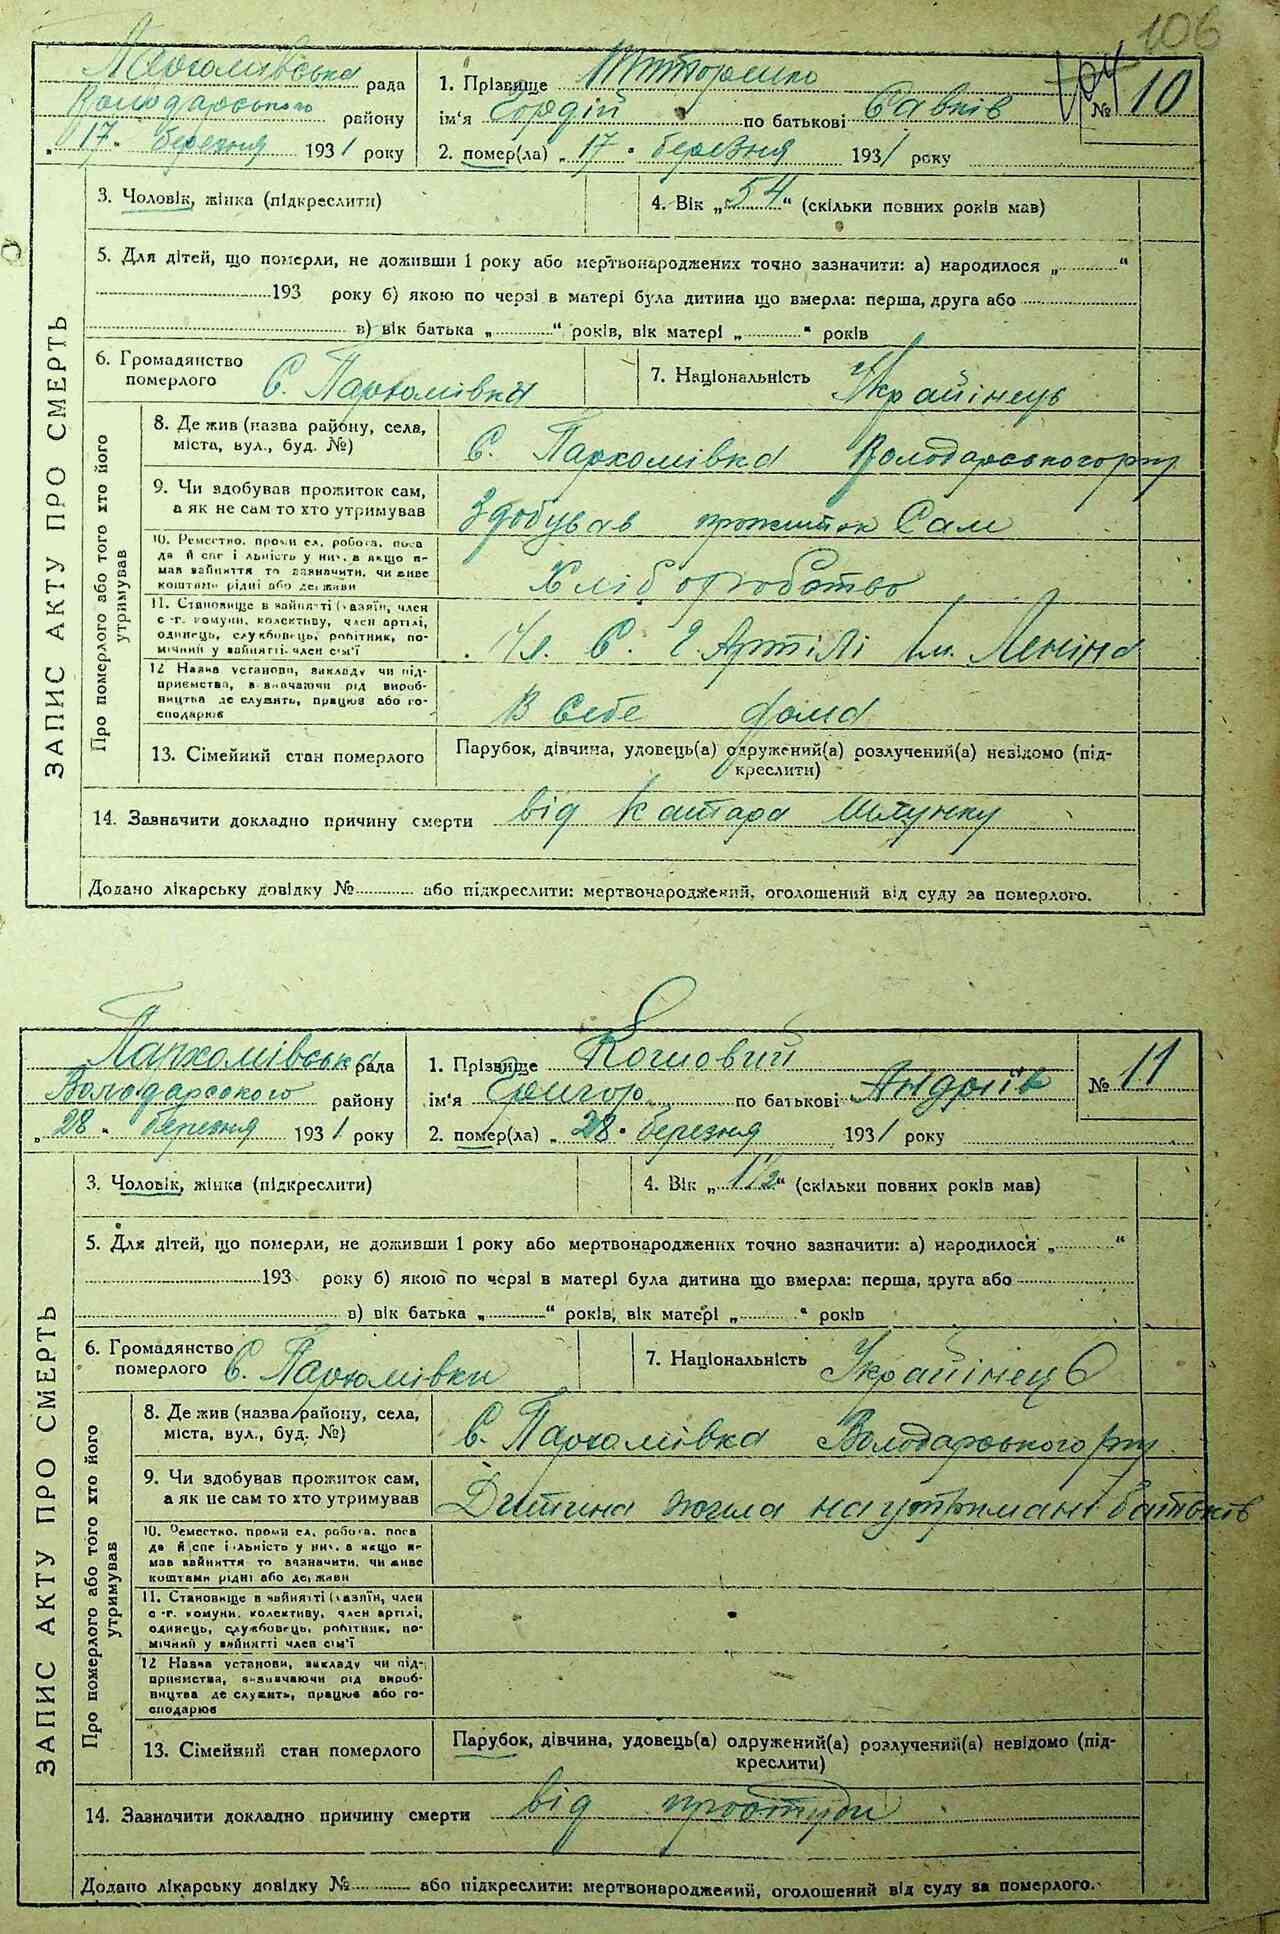 106
Пархомівська рада
Володарського району
„17" березня 1931 року
1. Прізвище Титоренко
ім'я Гордій по батькові Савків
№ 10
2. помер(ла) „17" березня 1931 року
3. Чоловік, жінка (підкреслити)
4. Вік „54" (скільки повних років мав)
5. Для дітей, що померли, не доживши 1 року або мертвонароджених точно зазначити: а) народилося „............"
193 року б) якою по черзі в матері була дитина що вмерла: перша, друга або
в) вік батька „............" років, вік матері „............" років
6. Громадянство
померлого С. Пархомівка
7. Національність Украйінець
ЗАПИС АКТУ ПРО СМЕРТЬ
Про померлого або того хто його
утримував
8. Де жив (назва району, села,
міста, вул., буд. №)
С. Пархомівка Володарського р-ну
9. Чи здобував прожиток сам,
а як не сам то хто утримував
Здобував прожиток Сам
10. Ремество, промисел, робота, поса
да й спеціяльність у них, а якщо не
мав зайняття то зазначити, чи живе
коштами рідні або держави
Хліборобство
11. Становище в зайнятті (хазяїн, член
с.-г. комуни, колективу, член артілі,
одинець, службовець, робітник, по-
мічний у зайнятті член сім'ї
Чл. С. Г. Артілі Ім. Леніна
12 Назва установи, закладу чи під-
приємства, визначаючи рід вироб-
ництва де служить, працює або го-
сподарює
В себе дома
13. Сімейний стан померлого
Парубок, дівчина, удовець(а) одружений(а) розлучений(а) невідомо (під-
креслити)
14. Зазначити докладно причину смерти від Катара шлунку
Додано лікарську довідку №............ або підкреслити: мертвонароджений, оголошений від суду за померлого.
Пархомівська рада
Володарського району
„28" березня 1931 року
1. Прізвище Кошовий
ім'я Григор по батькові Андріїв
№ 11
2. помер(ла) „28" березня 1931 року
3. Чоловік, жінка (підкреслити)
4. Вік „1½" (скільки повних років мав)
5. Для дітей, що померли, не доживши 1 року або мертвонароджених точно зазначити: а) народилося „............"
193 року б) якою по черзі в матері була дитина що вмерла: перша, друга або
в) вік батька „............" років, вік матері „............" років
6. Громадянство
померлого С. Пархомівки
7. Національність Украйінець
ЗАПИС АКТУ ПРО СМЕРТЬ
Про померлого або того хто його
утримував
8. Де жив (назва району, села,
міста, вул., буд. №)
С. Пархомівка Володарського р-ну
9. Чи здобував прожиток сам,
а як не сам то хто утримував
Дитина жила на утримані батьків
10. Ремество, промисел, робота, поса
да й спеціяльність у них, а якщо не
мав зайняття то зазначити, чи живе
коштами рідні або держави
11. Становище в зайнятті (хазяїн, член
с.-г. комуни, колективу, член артілі,
одинець, службовець, робітник, по-
мічний у зайнятті член сім'ї
12 Назва установи, закладу чи під-
приємства, визначаючи рід вироб-
ництва де служить, працює або го-
сподарює
13. Сімейний стан померлого
Парубок, дівчина, удовець(а) одружений(а) розлучений(а) невідомо (під-
креслити)
14. Зазначити докладно причину смерти від простуди
Додано лікарську довідку №............ або підкреслити: мертвонароджений, оголошений від суду за померлого.